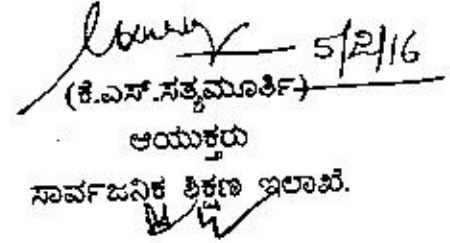 5/2/16
(ಕೆ.ಎಸ್.ಸತ್ಯಮೂರ್ತಿ)
ಆಯುಕ್ತರು
ಸಾರ್ವಜನಿಕ ಶಿಕ್ಷಣ ಇಲಾಖೆ.